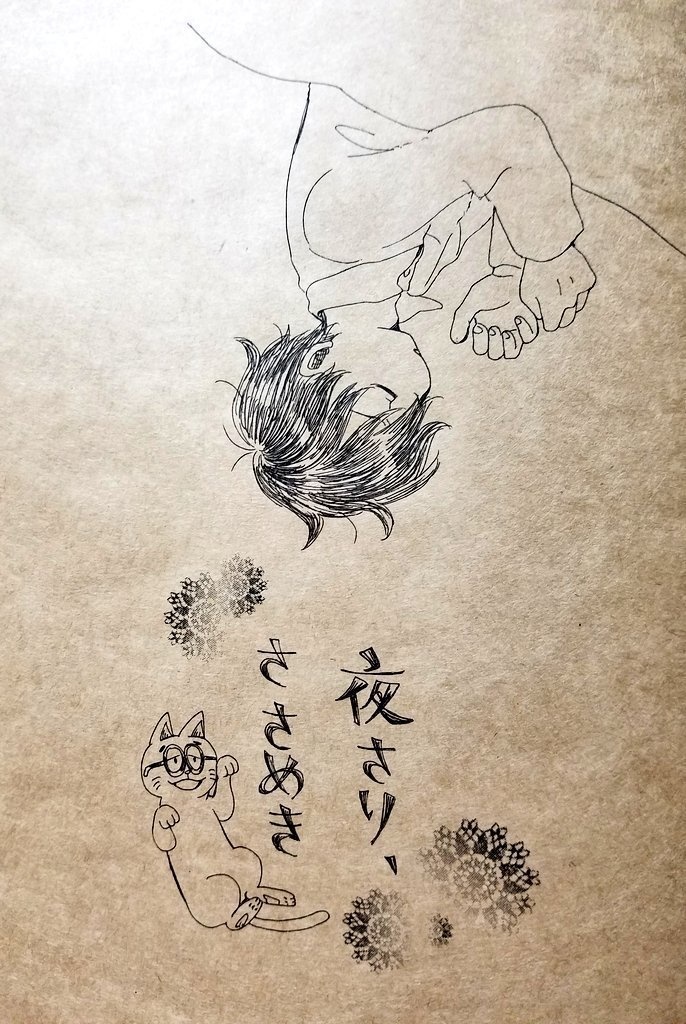 夜さり、
ささめき